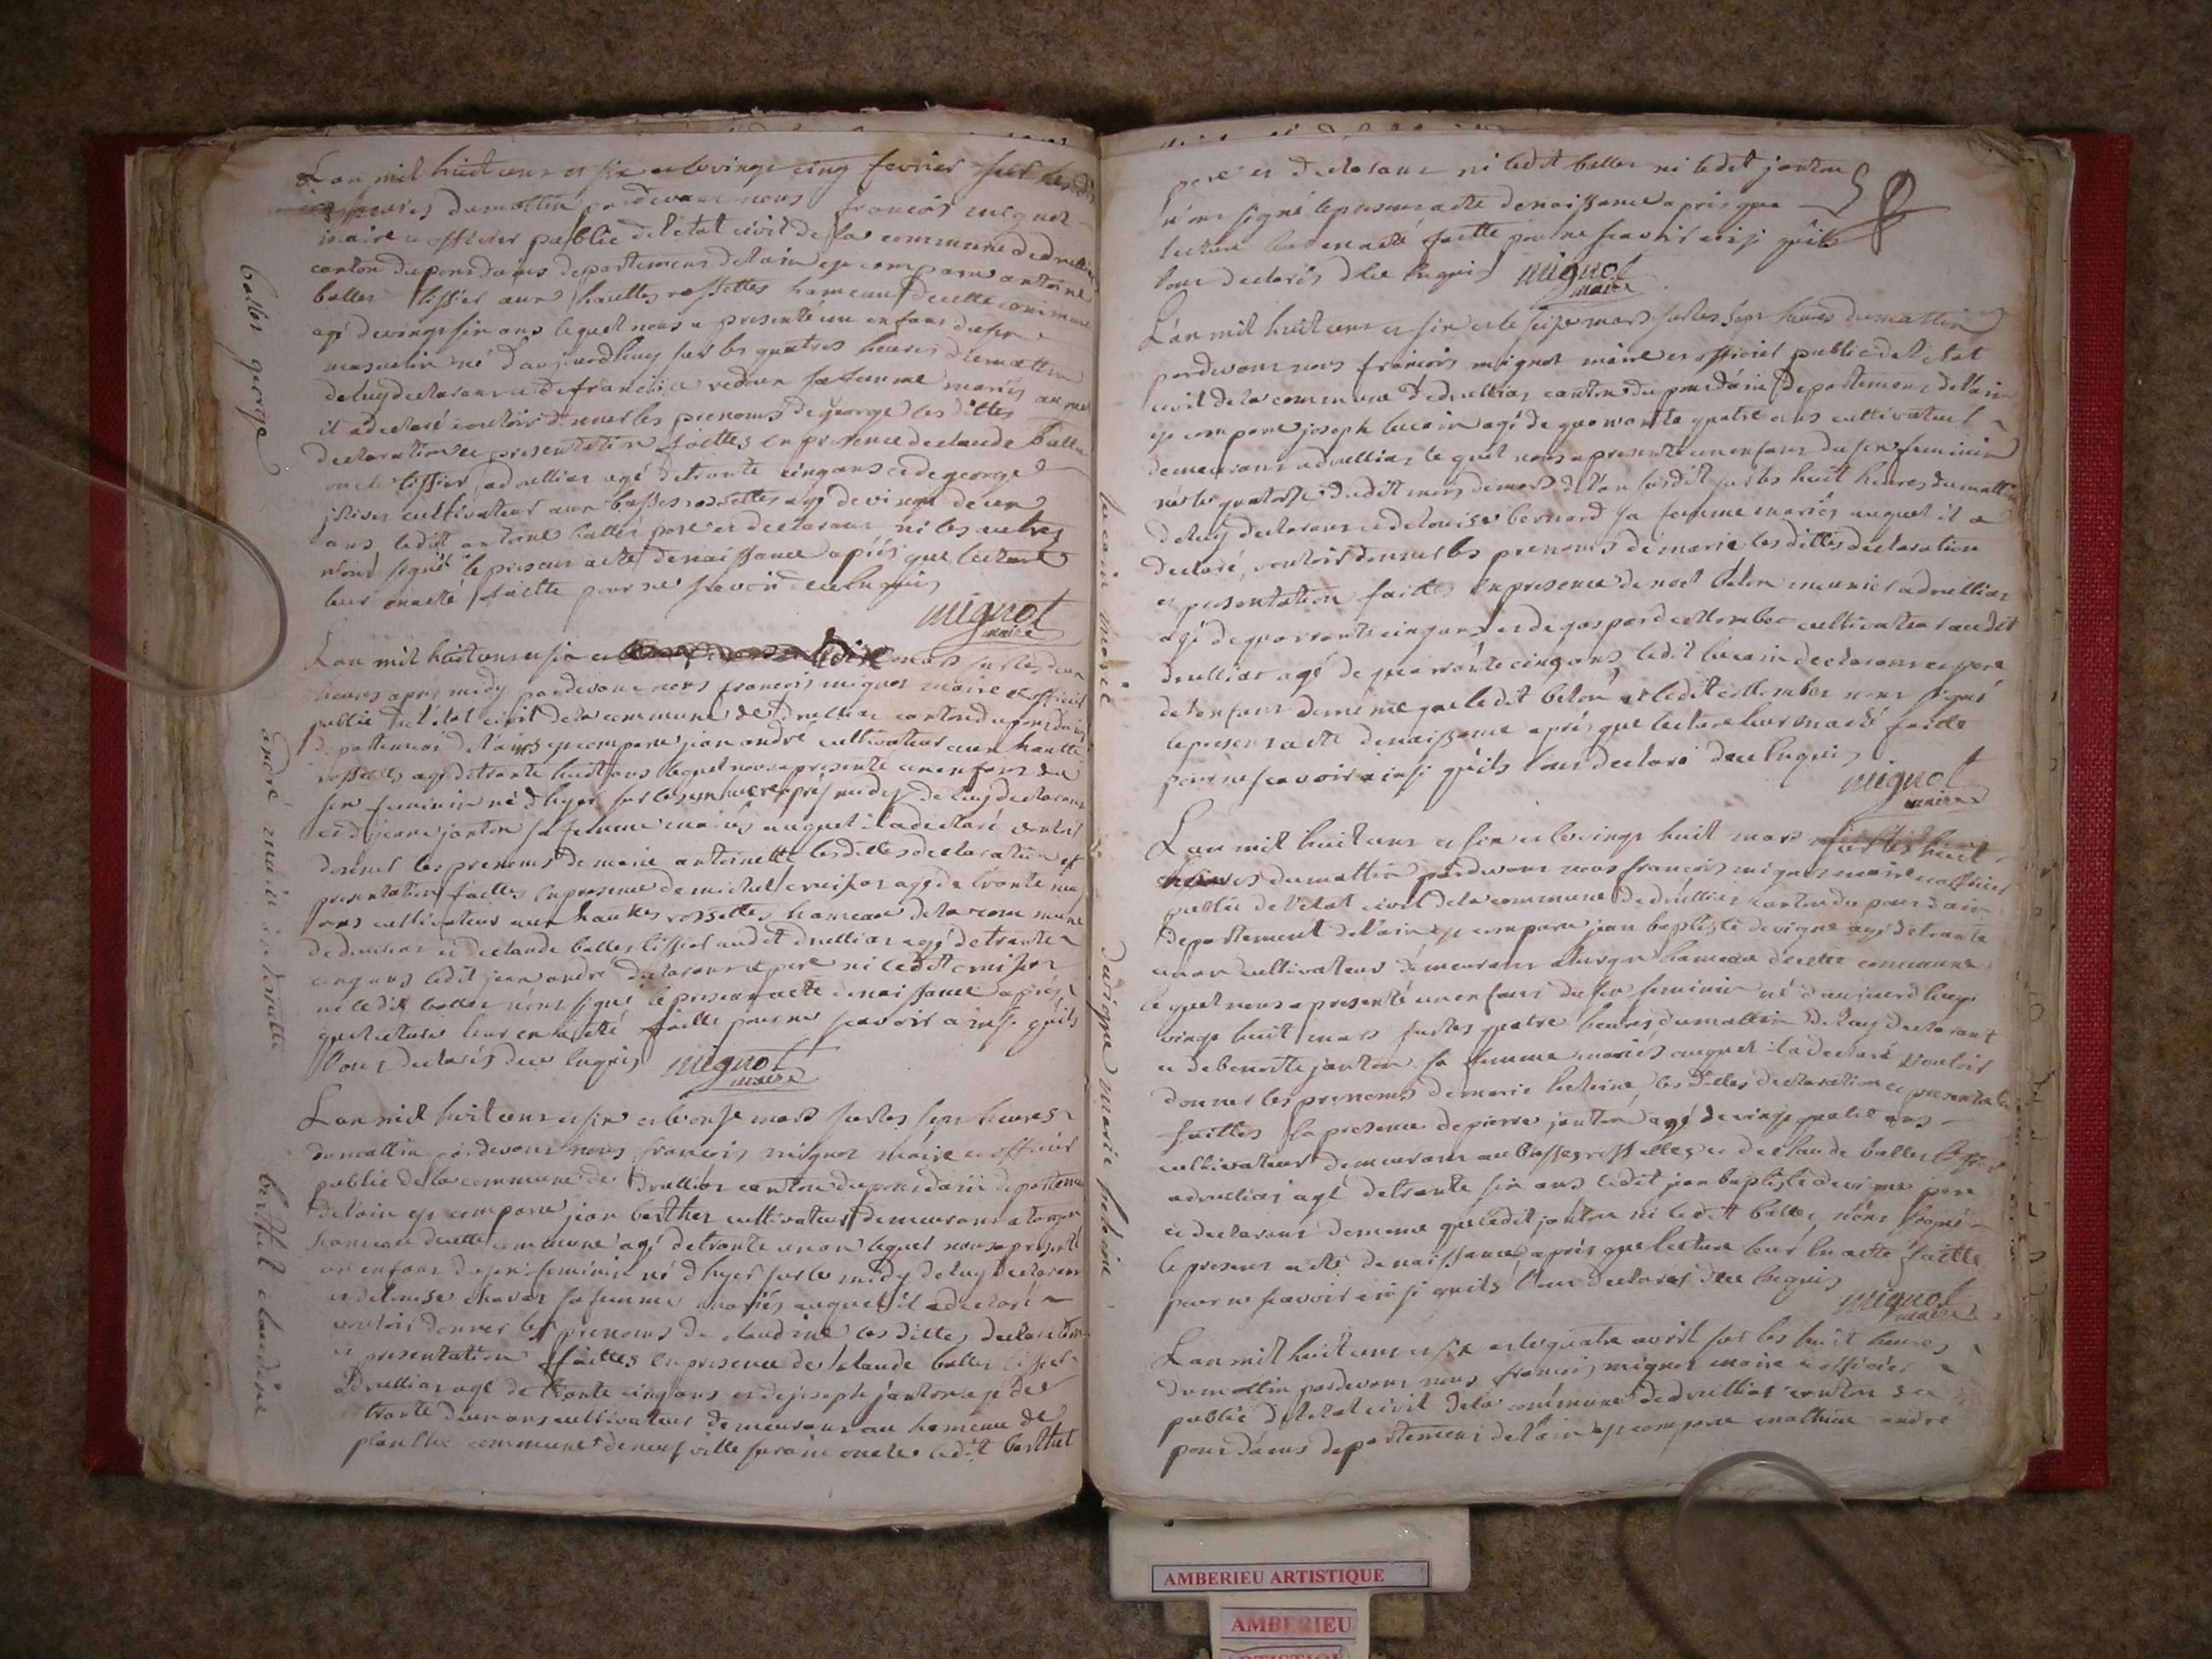 L'an mil huit cens et six et le vingt cinq fevrier sur les dix
heures du mattin pardevant nous francois mignot
maire et officier public de l'etat civil de la commune de druillias
canton du pons dains departement de l'ain est comparu antoine
ballet tissier aux hauttes rossettes hameau de cette commune
agé de vingt six ans lequel nous a presenté un enfant du sexe
masculin né d'aujourdhuy sur les quattres heures du mattin
de luy declarant et de francoise sa femme mariés auquel
il a declaré vouloir donner les prenoms de george les dittes
declaration et presentation faittes en presence de claude ballet
oncle tissier a druillias agé de trante cinq ans et de george
cultivateur aux basses rossettes agé de vingt deux
ans ledit antoine ballet pere et declarant ni les autres
n'ont signé le present acte de naissance après que lecture
leur en a eté faitte pour ne scavoir de ce enquis
mignot
maire
ballet george
L'an mil huit cens et six et le mars sur les deux
heures après midy pardevant nous francois mignot maire et officier
public de l'etat civil de la commune de druillias canton du pons dains
departement de l'ain est comparu jean andré cultivateur aux hautte
rossettes agé de trante huit ans lequel nous a presenté un enfant du
sexe feminin né d'hyer sur les une heure après midy de luy declarant
et de jeanne janton sa femme mariés auquel il a declaré vouloir
donner les prenoms de marie antoinette les dittes declaration et
presentation faittes en presence de michel agé de trante neuf
ans cultivateur aux hauttes rossettes hameau de la commune
de druillias et de claude ballet tissier audit druillias agé de trante
cinq ans ledit jean andré declarant et pere ni ledit
ni ledit ballet n'ont signé le present acte de naissance après
que lecture leur en a eté faitte pour ne scavoir ainsi qu'ils
l'ont declarés de ce enquis mignot
maire
andré marie antoinette
L'an mil huit cens et six et le onze mars sur les sept heures
du mattin pardevant nous francois mignot maire et officier
public de la commune de druillias canton du pons dain departement
de l'ain est comparu jean berthet cultivateur demeurant a
hameau de cette commune agé de trante un an lequel nous a presenté
un enfant du sexe feminin né d'hyer sur le midy de luy declarant
et de louise chavas sa femme mariés auquel il a declaré
vouloir donner les prenoms de claudine les dittes declaration
et presentation faittes en presence de claude ballet tissier
a druillias agé de trante cinq ans et de joseph janton agé de
trante deux ans cultivateur demeurant au hameau de
planche commune de neufville sur ain oncle ledit berthet
berthet claudine
pere et declarant ni ledit ballet ni ledit janton
n'ont signé le present acte de naissance apris que
lecture leur en a eté faitte pour ne scavoir ainsi qu'ils
l'ont declarés de ce enquis mignot
maire
L'an mil huit cens et six et le seize mars sur les sept heures du mattin
pardevant nous francois mignot maire et officier public de l'etat
civil de la commune de druillias canton du pons dain departement de l'ain
est comparu joseph lucain agé de quaranta quatre ans cultivateur
demeurant a druillias lequel nous a presenté un enfant du sexe feminin
né le quatorse dudit mois de mars de l'an susdit sur les huit heures du mattin
de luy declarant et de louise bernard sa femme mariés auquel il a
declaré vouloir donner les prenoms de marie les dittes declaration
et presentation faittes en presence de noel beton meunier a druillias
agé de quarante cinq ans et de gaspard collomber cultivateur audit
druillias agé de quarante cinq ans ledit lucain declarant et pere
de l'enfant de meme que ledit beton et ledit collomber n'ont signé
le present acte de naissance après que lecture leur en a eté faitte
pour ne scavoir ainsi qu'ils l'ont declaré de ce enquis
mignot
maire
lucain marie
L'an mil huit cens et six et le vingt huit mars sur les huit
heures du mattin pardevant nous francois mignot maire et officier
public de l'etat civil de la commune de druillias canton du pons dain
departement de l'ain est comparu jean baptiste devigne agé de trante
un an cultivateur demeurant a turgon hameau de cette commune
lequel nous a presenté un enfant du sexe feminin né d'aujourdhuy
vingt huit mars sur les quatre heures du mattin de luy declarant
et de benoite janton sa femme mariés auquel il a declaré vouloir
donner les prenoms de marie heleine les dittes declaration et presentation
faittes en presence de pierre janton agé de vingt quatre ans
cultivateur demeurant au basses rossettes et de claude ballet tissier
a druillias agé de trante six ans ledit jean baptiste devigne pere
et declarant de meme que ledit janton ni ledit ballet n'ont signé
le present acte de naissance après que lecture leur en a eté faitte
pour ne scavoir ainsi qu'ils l'ont declarés de ce enquis
mignot
maire
devigne marie heleine
L'an mil huit cens et six et le quatre avril sur les huit heures
du mattin pardevant nous francois mignot maire et officier
public de l'etat civil de la commune de druillias canton du
pons dains departement de l'ain est comparu mathieu andré
AMBERIEU ARTISTIQUE
AMBERIEU
ARTISTIQUE